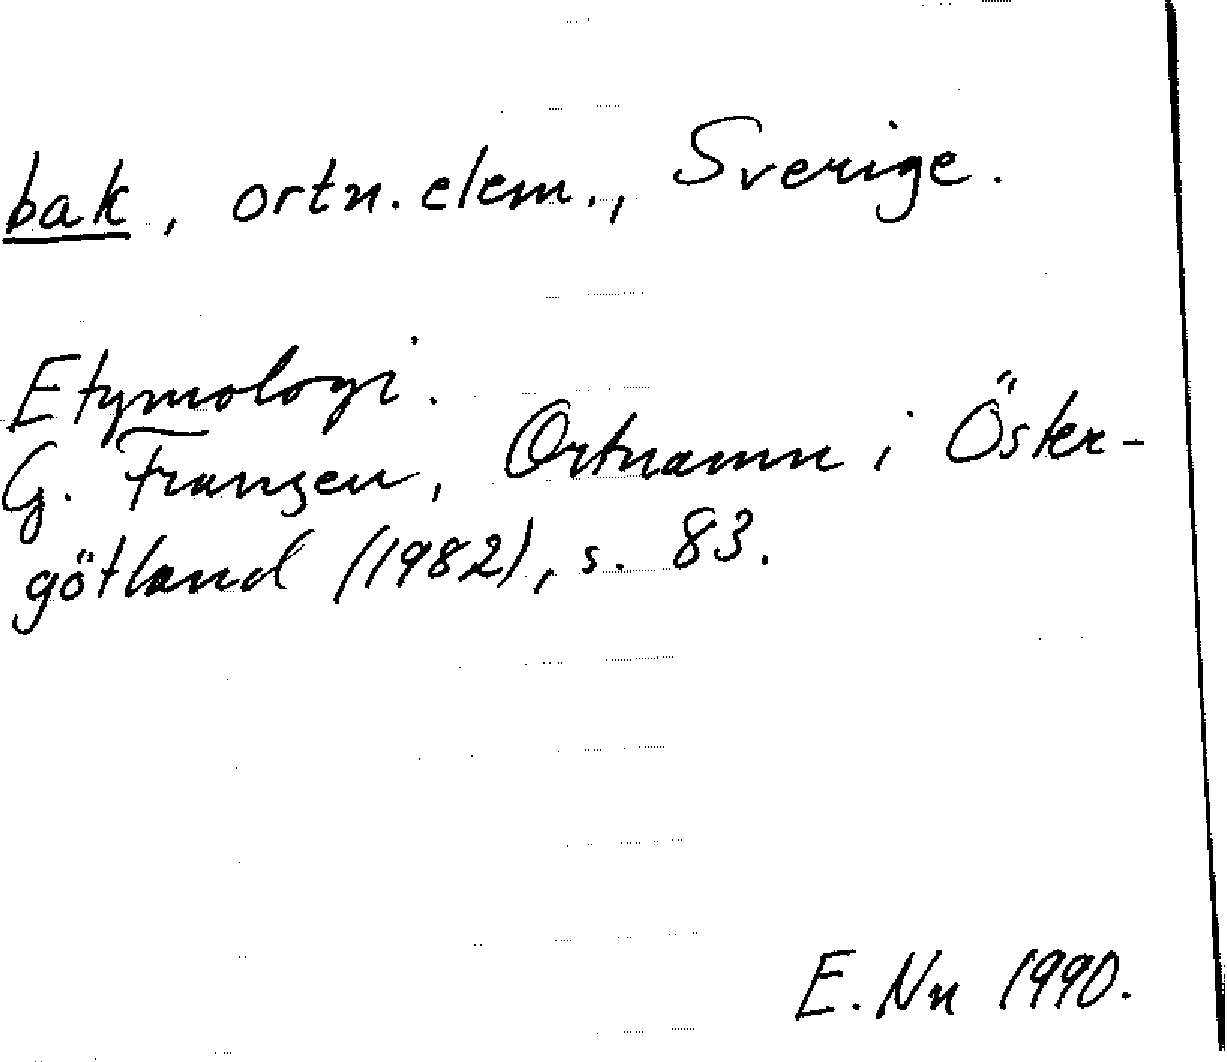 bak, ortn. elem., Sverige.
Etymologi.
G. Franzen, Ortnamn i Öster-
götland (1982), s. 83.
E. Nn 1990.